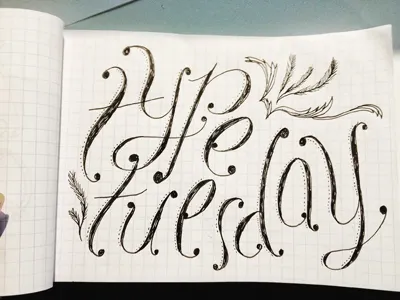 type
tuesday